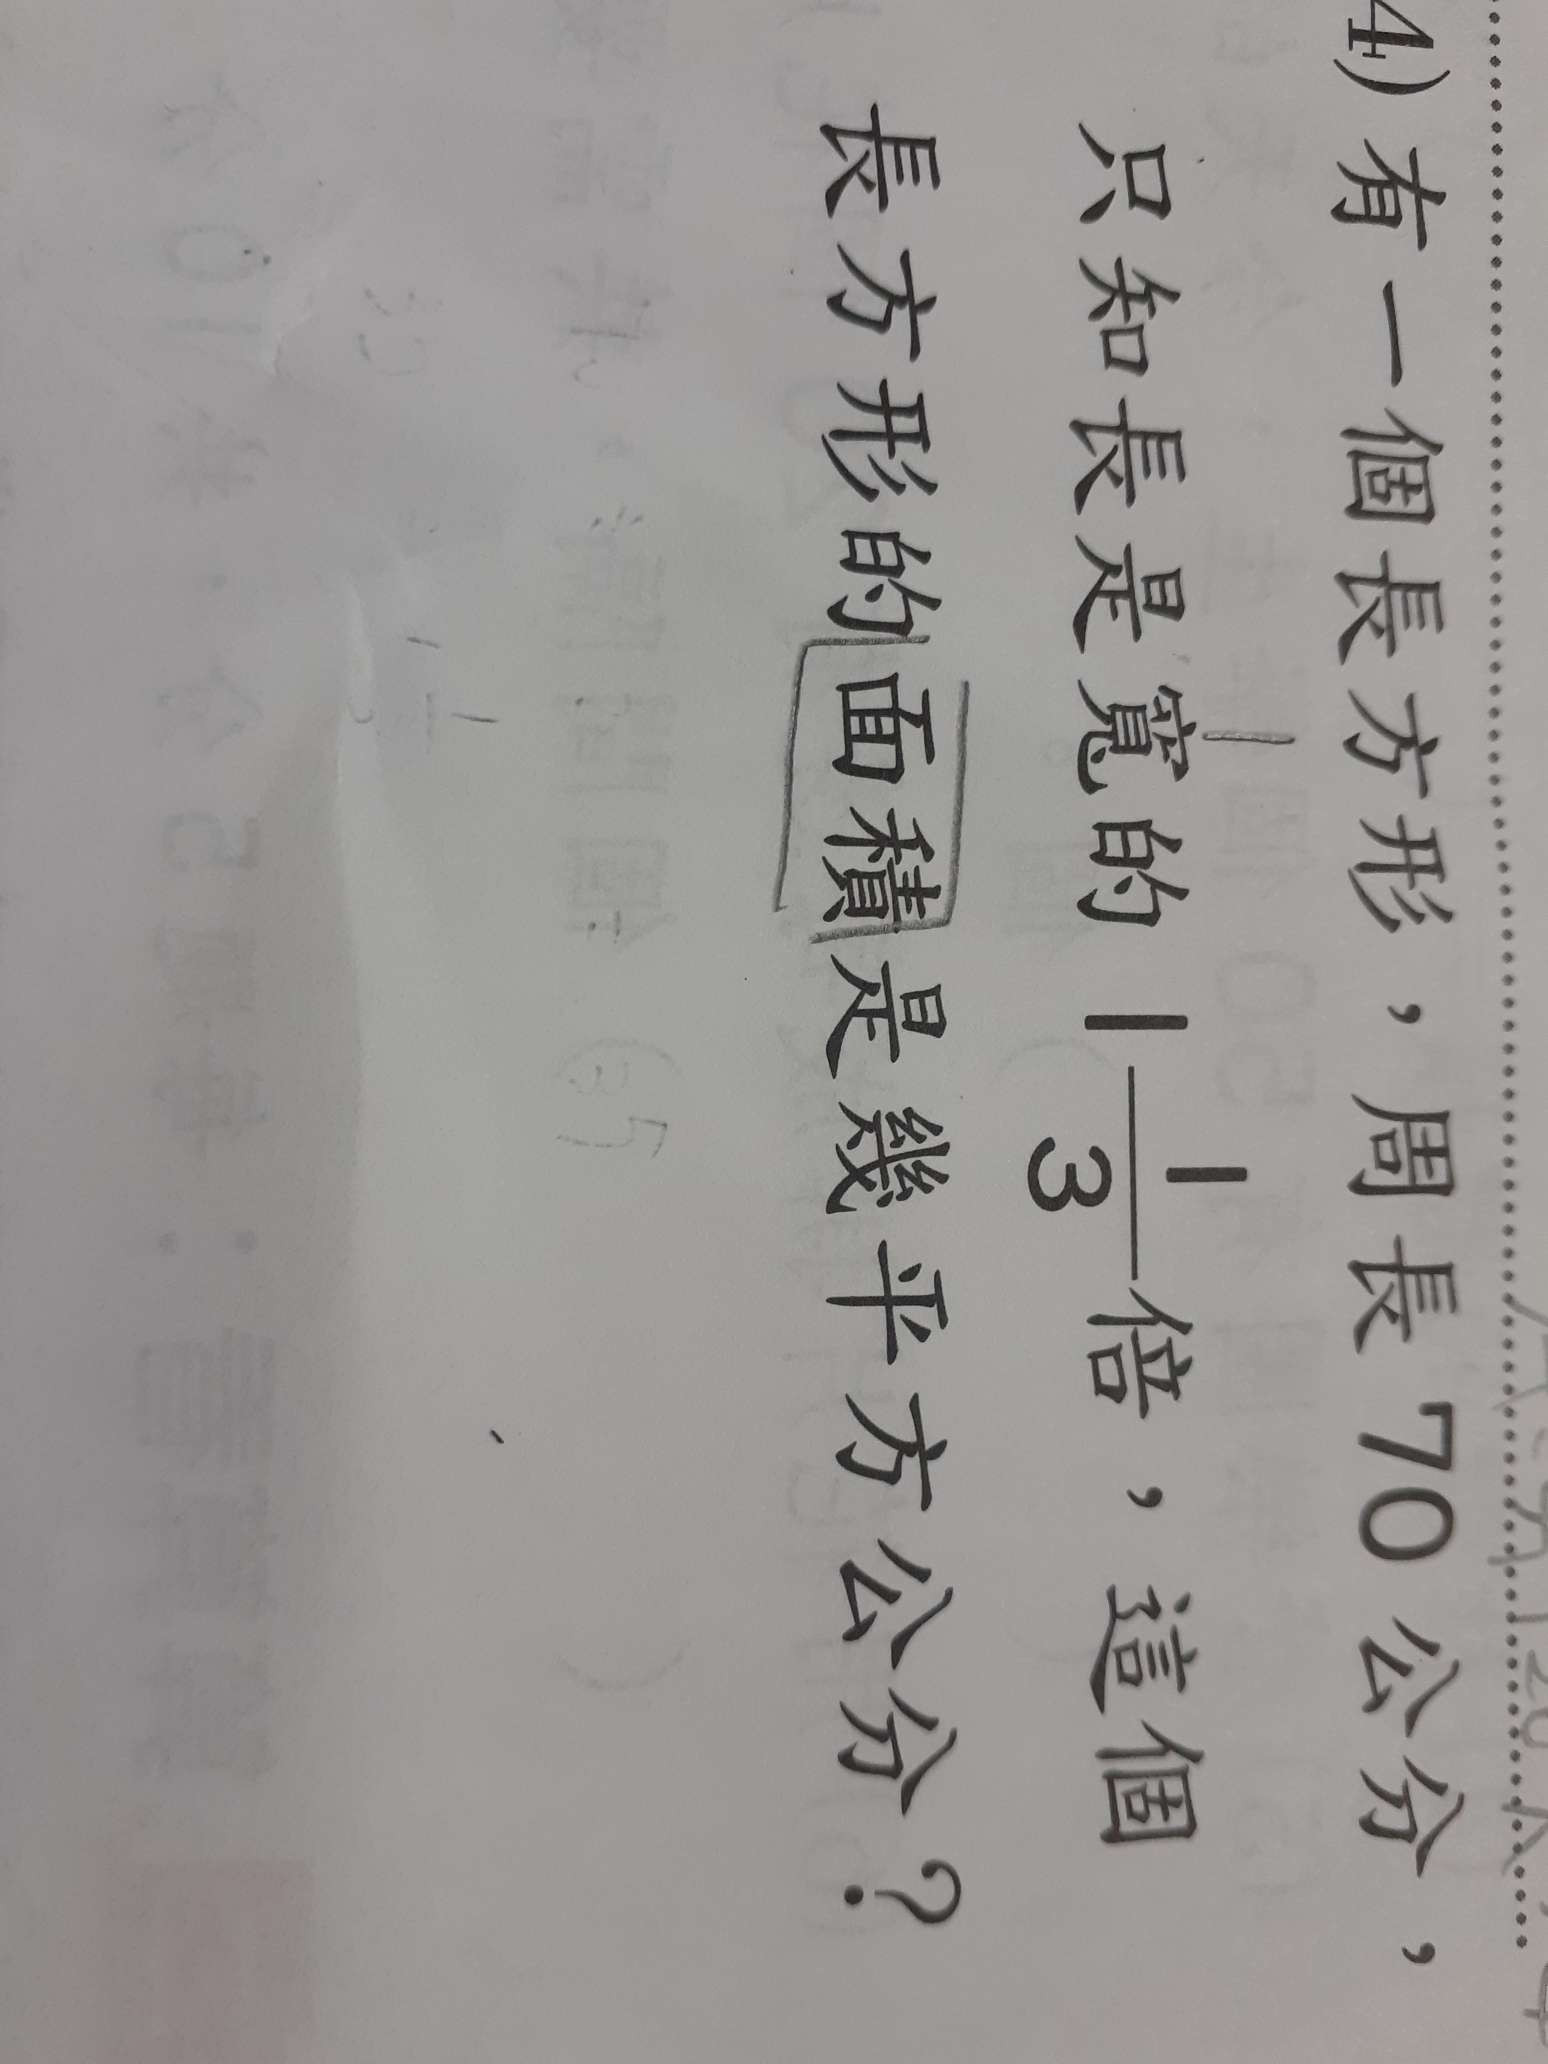 4) 有一個長方形，周長 70 公分，
只知長是寬的 1 1/3 倍，這個
長方形的面積是幾平方公分？